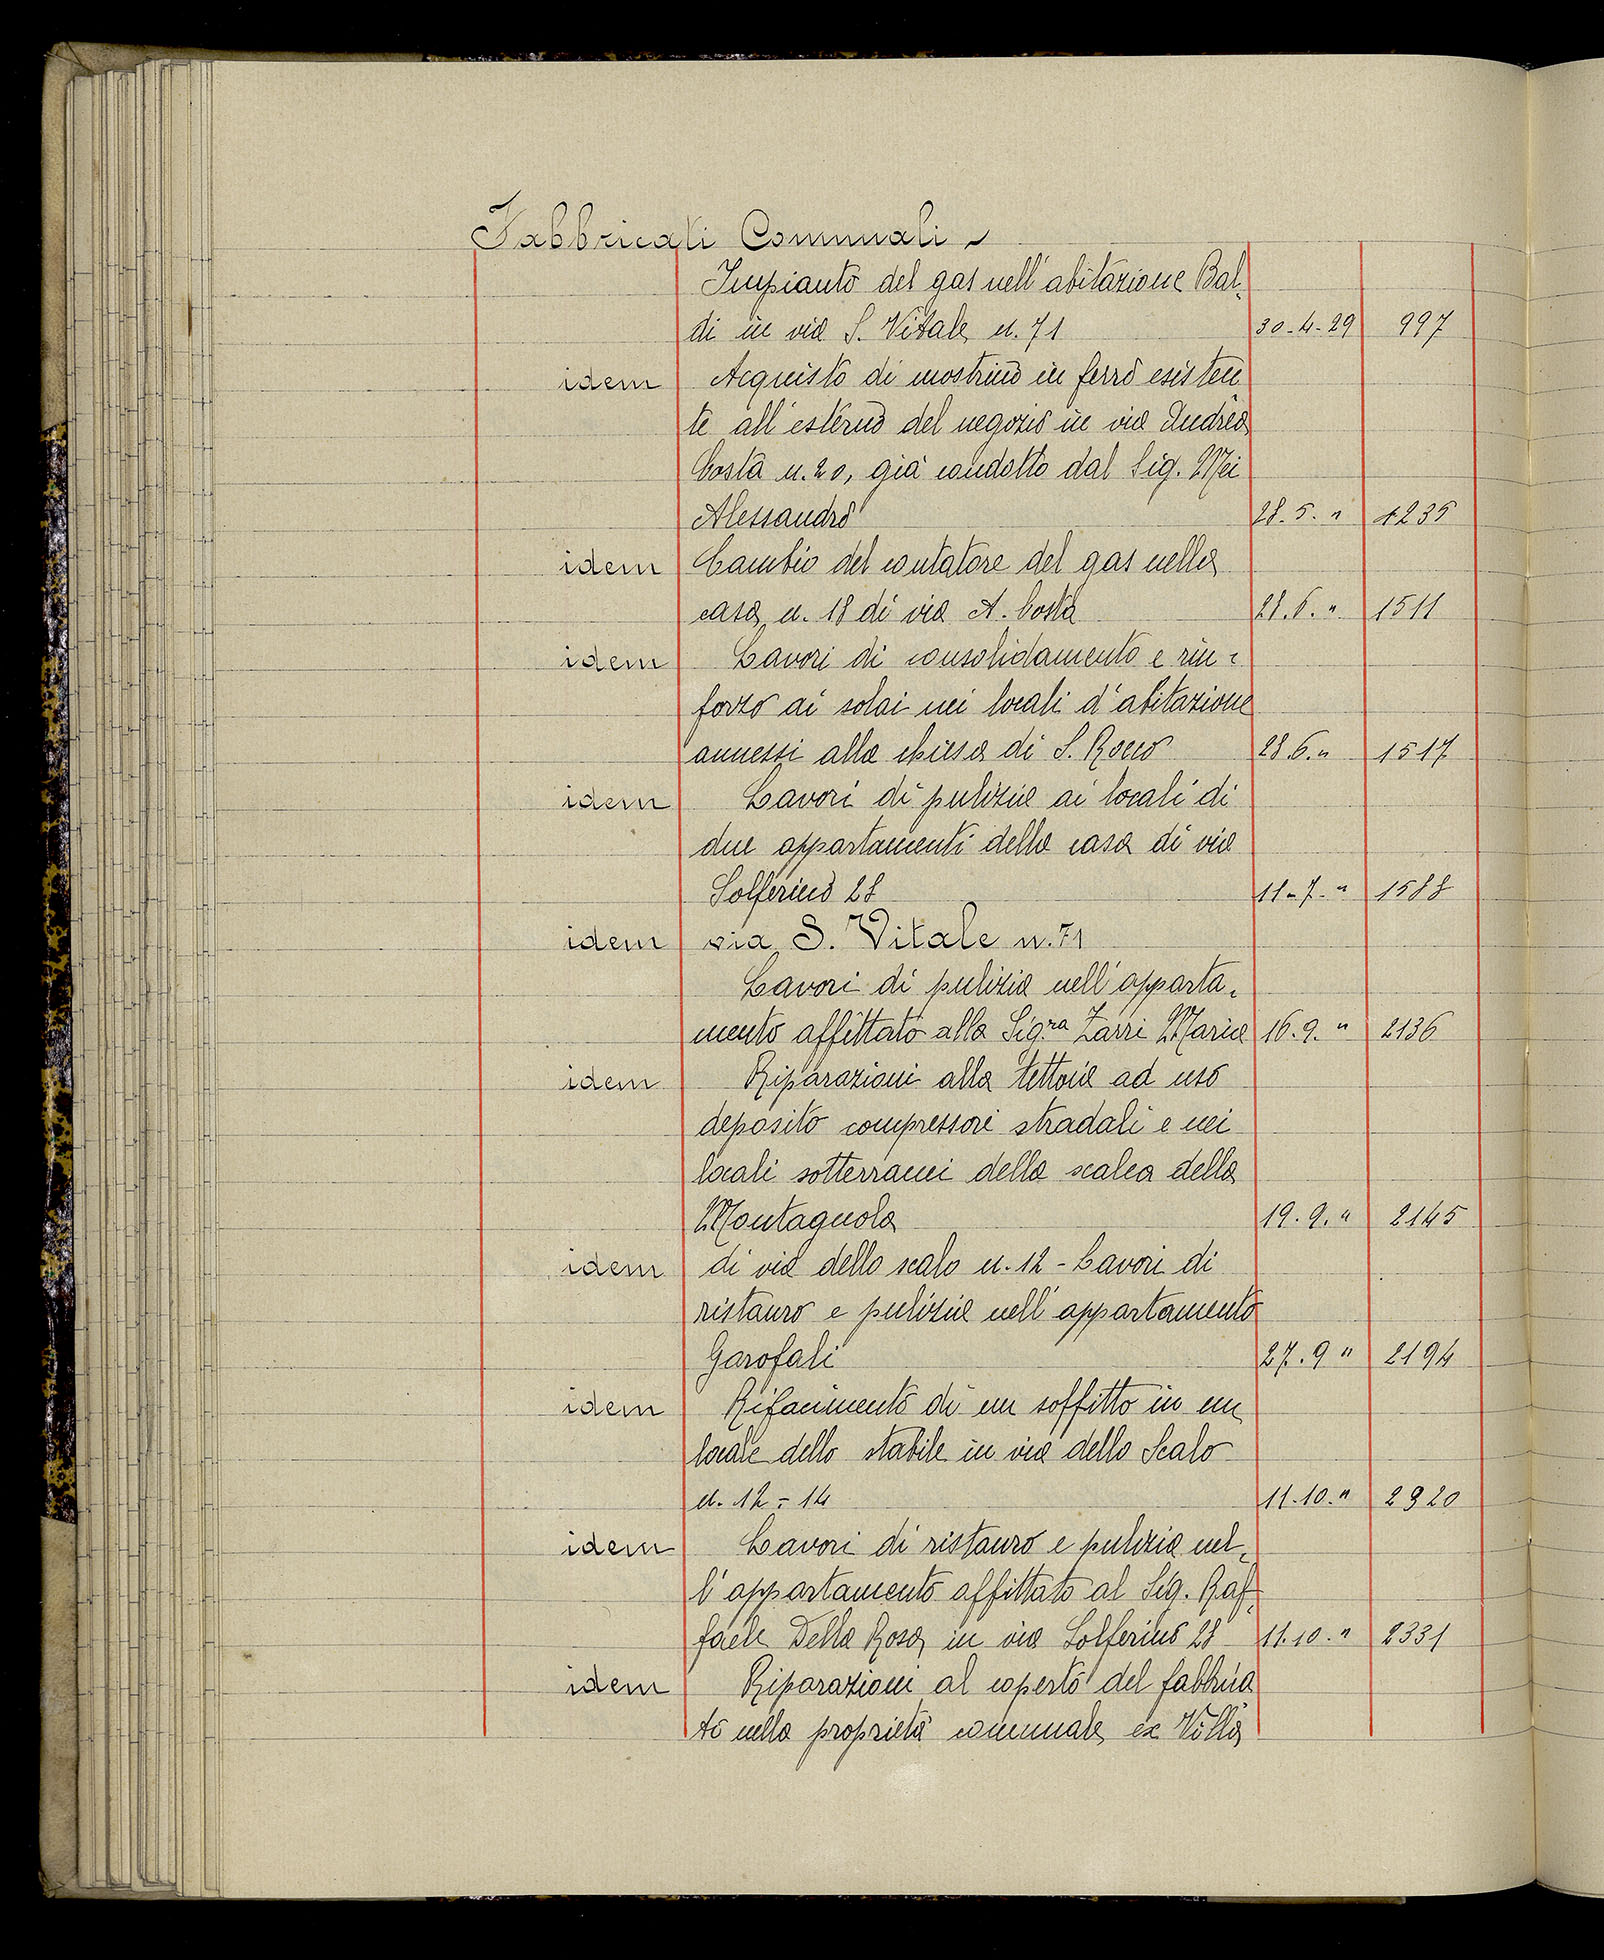 Fabbricati Comunali ~
Impianto del gas nell'abitazione Bal-
di in via S. Vitale n. 71 30-4-29 997
idem Acquisto di mostrino in ferro esisten
te all'esterno del negozio in via Andrea
Costa n. 20, già condotto dal Sig. Mei
Alessandro 28.5. " 1235
idem Cambio del contatore del gas nella
casa n. 18 di via A. Costa 28.6. " 1511
idem Lavori di consolidamento e rin=
forzo ai solai nei locali d'abitazione
annessi alla chiesa di S. Rocco 28.6. " 1517
idem Lavori di pulizia ai locali di
due appartamenti della casa di via
Solferino 28 11-7-" 1588
idem via S. Vitale n. 71
Lavori di pulizia nell'apparta-
mento affittato alla Sig.ra Zarri Maria 16.9. " 2136
idem Riparazioni alla tettoia ad uso
deposito compressori stradali e nei
locali sotterranei della scalea della
Montagnola 19.9. " 2145
idem di via dello scalo n. 12 - Lavori di
ristauro e pulizia nell'appartamento
Garofali 27.9 " 2194
idem Rifacimento di un soffitto in un
locale dello stabile in via dello Scalo
n. 12 = 14 11.10. " 2320
idem Lavori di ristauro e pulizia nel-
l'appartamento affittato al Sig. Raf-
faele Della Rosa in via Solferino 28 11.10. " 2331
idem Riparazioni al coperto del fabbrica
to nella proprietà comunale ex Villa